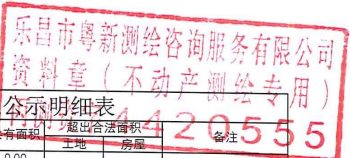 乐昌市粤新测绘咨询服务有限公司
资料章（不动产测绘专用）
公示明细表
4420555
有面积 超出合法面积 备注
土地 房屋
0.00